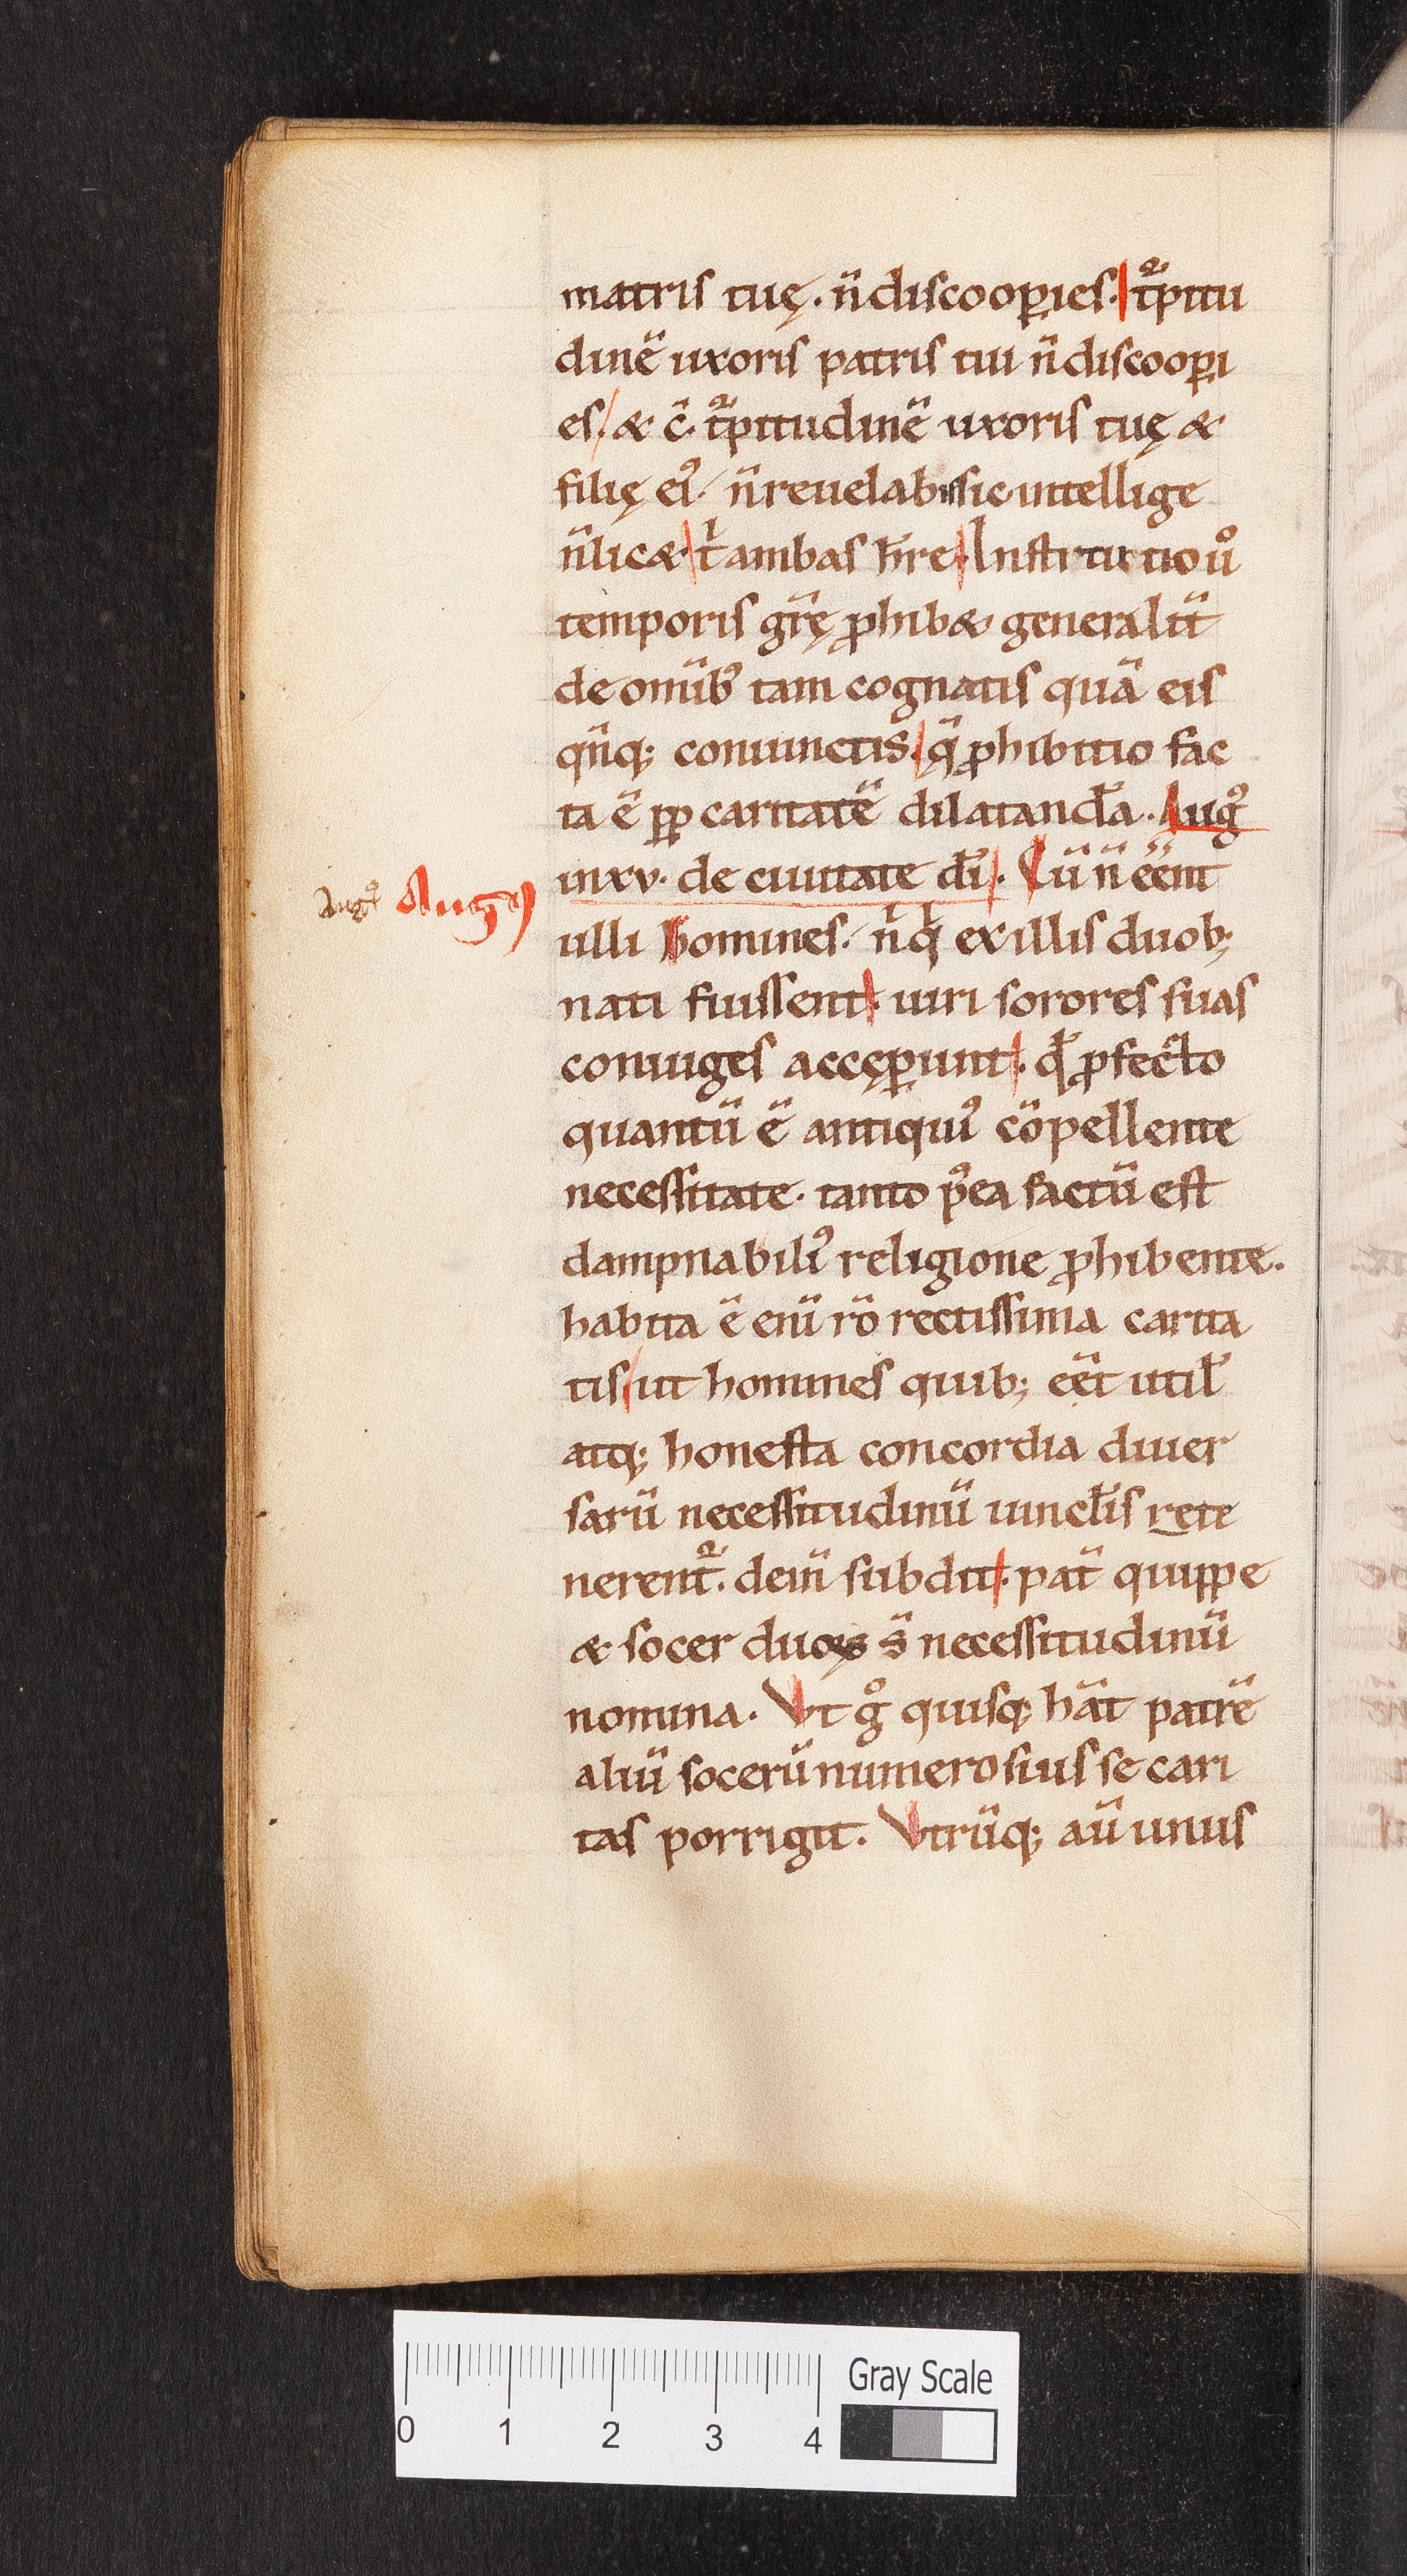 matris tuę. n̄ discooꝑies. t̄pitu
dinē uxoris patris tui n̄ discooꝑi
es. & c̄. t̄pitudinē uxoris tuę &
filię ei᷒. n̄ reuelabis sic intellige
n̄ lic& t̄ ambas h̄re. Instructio ůo
temporis gr̄ę ꝓhib& generalit̄
de om̄ib᷒ tam cognatis quā eis
qn̄q; coniunctis. q̄ ꝓhibitio fac
ta ē ꝓꝑ caritatē dilatand̄a. Aug᷒
in xv. de ciuitate dī. Cū n̄ ēēnt
ulli homines. n̄ q̄ ex illis duob;
nati fuissent. uiri sorores suas
coniuges accęꝑunt. qđ ꝓfecto
quantū ē antiqui᷒ cōpellente
necessitate. tanto p᷒ea factū est
dampnabili᷒ religione ꝓhibente.
habita ē eni̅ rō rectissima carita
tis ut homines quib; eēt util̄
atq; honesta concordia diuer
sarū necessitudinū uincl̄is rete
nerent̄. dein̄ subdit. pat̄ quippe
& socer duoꝝ s̄ necessitudinū
nomina. Vt gͦ quisq; hāt patrē
aliū socerū numerosius se cari
tas porrigit. Vtrūq; aū unus
Aug᷒ Aug᷒
0 1 2 3 4
Gray Scale